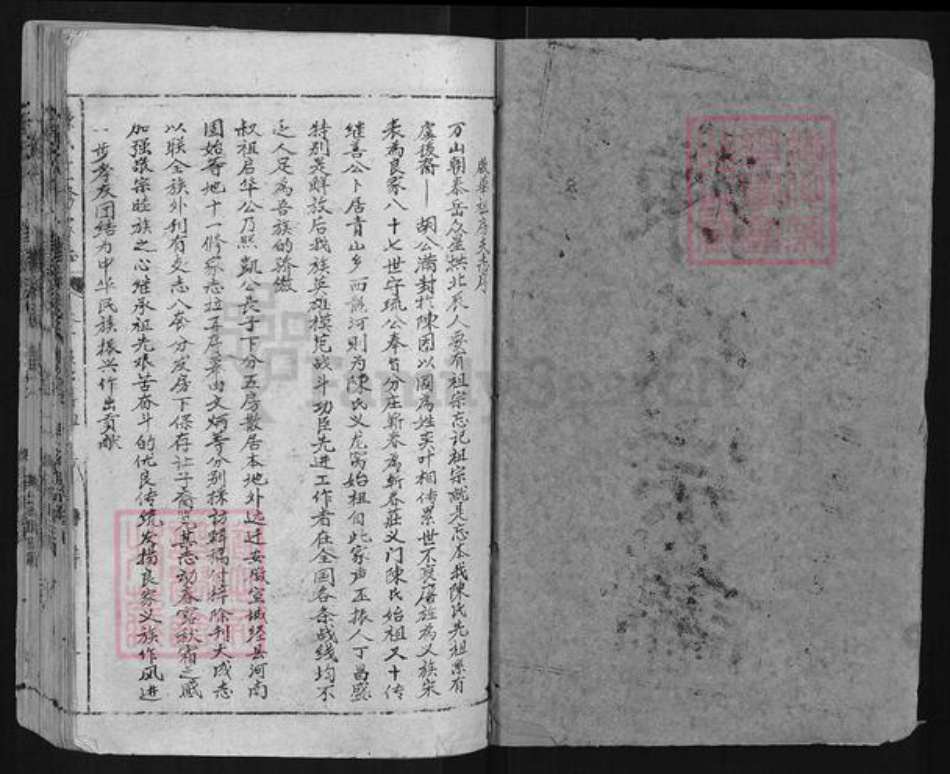 启华祖房支志序
万山朝泰岳众星拱北辰人要有祖宗忘记祖宗就是忘本我陈氏先祖系有
虞後裔——胡公满封扵陳因以國為姓奕叶相传累世不衰唐旌為义族宋
表為良家八十七世守琉公奉旨分庄蕲春為蕲春莊义门陳氏始祖又十传
继善公卜居青山乡西 河則为陳氏义龙窝始祖自此家声丕振人丁昌盛
特别是解放后我族英雄模范战斗功臣先进工作者在全国各条战线均不
乏人足為吾族的骄傲
叔祖启华公乃熙凱公長子下分五房散居本地外远迁安徽宣城经县河南
固始等地十一修家志 由文炳等分别採访辑稿付梓除刊大成志
以联全族外刊有支志八套分发房下保存让子裔览其志动春露秋霜之感
加强敬宗睦族之心继承祖先艰苦奋斗的优良传统发揚良家义族作风进
一步孝友团结为中华民族振兴作出贡献
FamilySearch